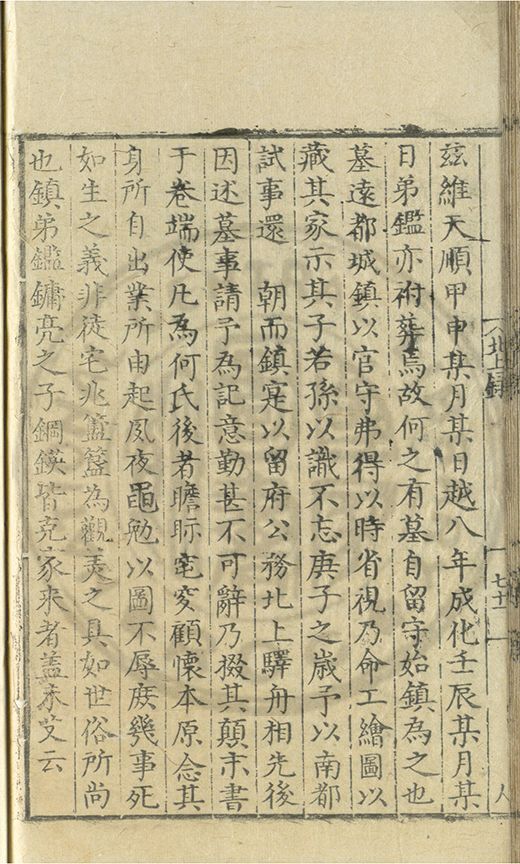 玆維天順甲申某月某日越八年成化壬辰某月某
日弟鑑亦祔葬焉故何之有墓自留守始鎮為之也
墓遠都城鎮以官守弗得以時省視乃命工繪圖以
藏其家示其子若孫以識不忘庚子之歲予以南都
試事還　朝而鎮寔以留府公務北上驛舟相先後
因述墓事請予為記意勤甚不可辭乃掇其顛末書
于卷端使凡為何氏後者瞻眎宅穸顧懷本原念其
身所自出業所由起夙夜黽勉以圖不辱庻幾事死
如生之義非徒宅兆簠簋為觀羙之具如世俗所尚
也鎮弟鑑鏞亮之子鋼鍈皆克家来者盖未艾云
北上錄
七十一